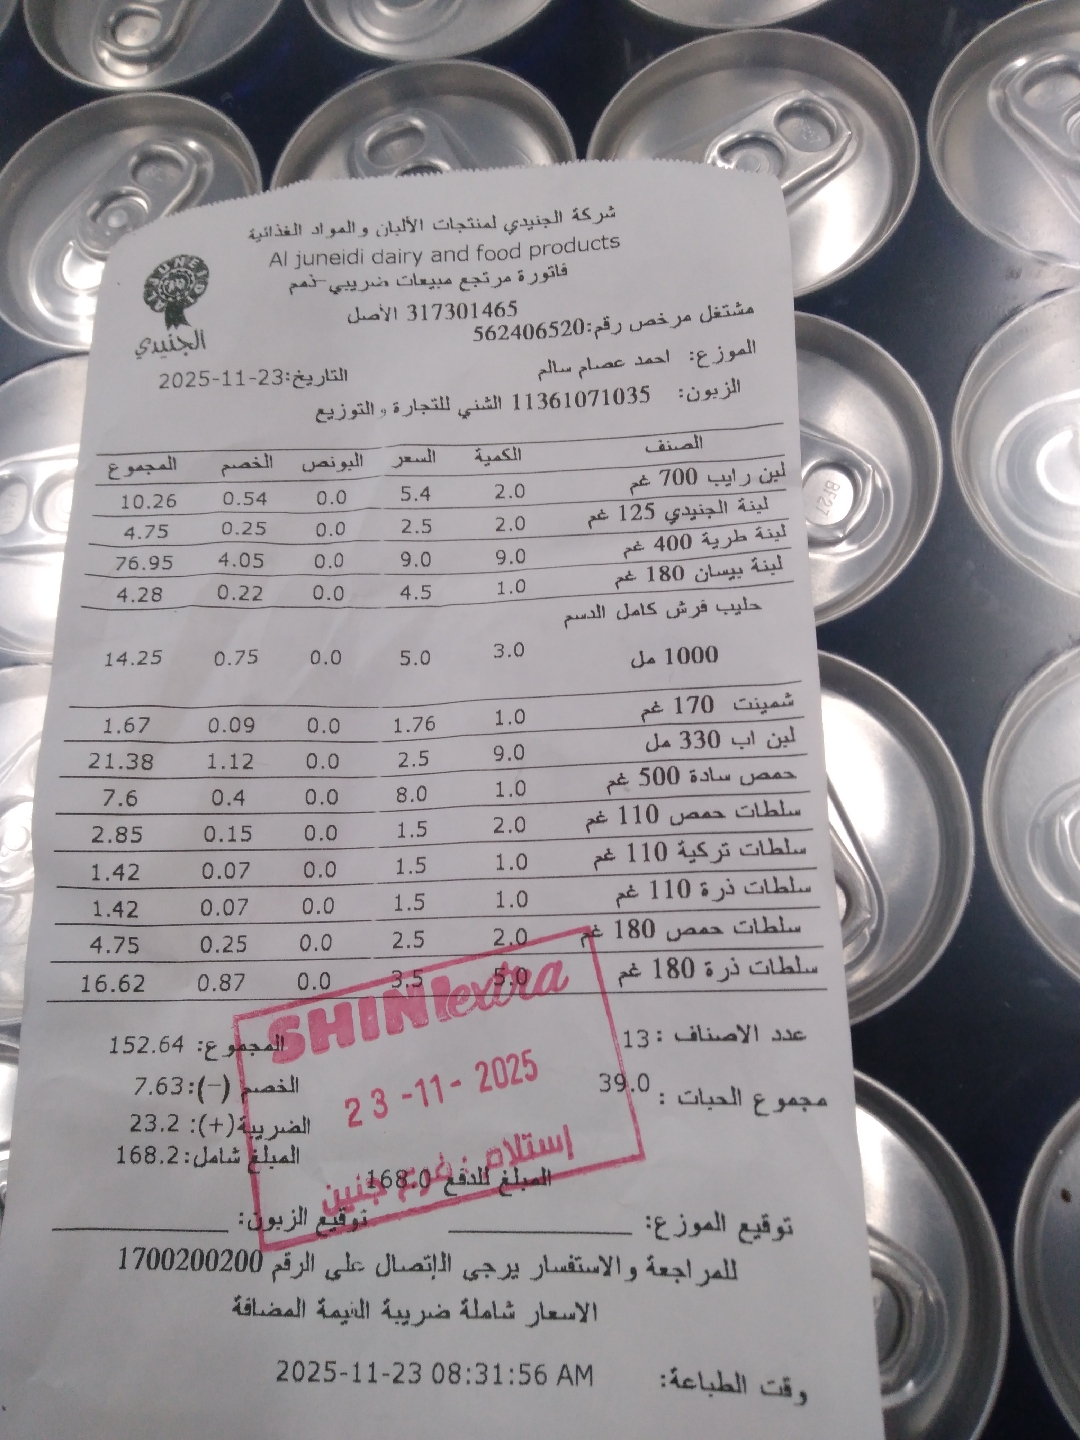 شركة الجنيدي لمنتجات الألبان والمواد الغذائية
Al juneidi dairy and food products
فاتورة مرتجع مبيعات ضريبي-ذمم
317301465 الأصل
مشتغل مرخص رقم:562406520
الجنيدي
الموزع: احمد عصام سالم
التاريخ:2025-11-23
الزبون: 11361071035 الشني للتجارة والتوزيع
الصنف الكمية السعر البونص الخصم المجموع
لبن رايب 700 غم 2.0 5.4 0.0 0.54 10.26
لبنة الجنيدي 125 غم 2.0 2.5 0.0 0.25 4.75
لبنة طرية 400 غم 9.0 9.0 0.0 4.05 76.95
لبنة بيسان 180 غم 1.0 4.5 0.0 0.22 4.28
حليب فرش كامل الدسم
1000 مل 3.0 5.0 0.0 0.75 14.25
شمينت 170 غم 1.0 1.76 0.0 0.09 1.67
لبن اب 330 مل 9.0 2.5 0.0 1.12 21.38
حمص سادة 500 غم 1.0 8.0 0.0 0.4 7.6
سلطات حمص 110 غم 2.0 1.5 0.0 0.15 2.85
سلطات تركية 110 غم 1.0 1.5 0.0 0.07 1.42
سلطات ذرة 110 غم 1.0 1.5 0.0 0.07 1.42
سلطات حمص 180 غم 2.0 2.5 0.0 0.25 4.75
سلطات ذرة 180 غم 5.0 3.5 0.0 0.87 16.62
SHINI extra
23-11-2025
إستلام : فرع جنين
عدد الاصناف : 13
المجموع: 152.64
مجموع الحبات : 39.0
الخصم (-):7.63
الضريبة(+): 23.2
المبلغ شامل:168.2
المبلغ للدفع 168.0
توقيع الموزع: توقيع الزبون:
للمراجعة والاستفسار يرجى الإتصال على الرقم 1700200200
الاسعار شاملة ضريبة القيمة المضافة
وقت الطباعة: 2025-11-23 08:31:56 AM